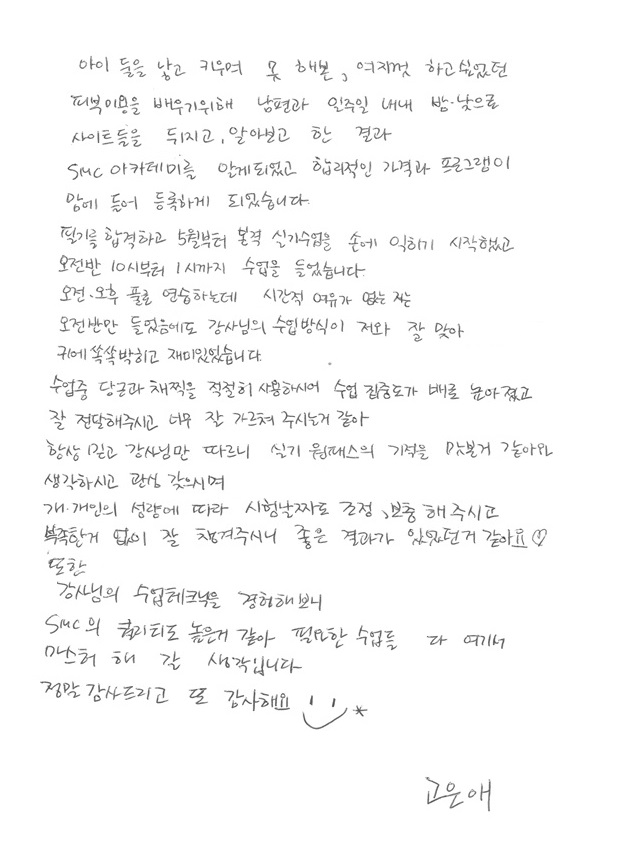 아이 들을 낳고 키우며 못 해본, 여지껏 하고싶었던
피부미용을 배우기위해 남편과 일주일 내내 밤·낮으로
사이트들을 뒤지고, 알아보고 한 결과
SMC 아카데미를 알게되었고 합리적인 가격과 프로그램이
맘에 들어 등록하게 되었습니다.
필기를 합격하고 5월부터 본격 실기수업을 손에 익히기 시작했고
오전반 10시부터 1시까지 수업을 들었습니다.
오전·오후 풀로 연습하는데 시간적 여유가 없는 저는
오전반만 들었음에도 강사님의 수업방식이 저와 잘 맞아
귀에 쏙쏙박히고 재미있었습니다.
수업중 당근과 채찍을 적절히 사용하시어 수업 집중도가 배로 높아졌고
잘 전달해주시고 너무 잘 가르쳐 주시는거 같아
항상 믿고 강사님만 따르니 실기 원패스의 기적을 맛본거 같아요
생각하시고 관심 갖으시며
개·개인의 성향에 따라 시험날짜도 조정, 보충 해주시고
부족한거 없이 잘 챙겨주시니 좋은 결과가 있었던거 같아요♡
또한
강사님의 수업테크닉을 경험해보니
SMC의 퀄리티도 높은거 같아 필요한 수업들 다 여기서
마스터 해 갈 생각입니다
정말 감사드리고 또 감사해요
고은애